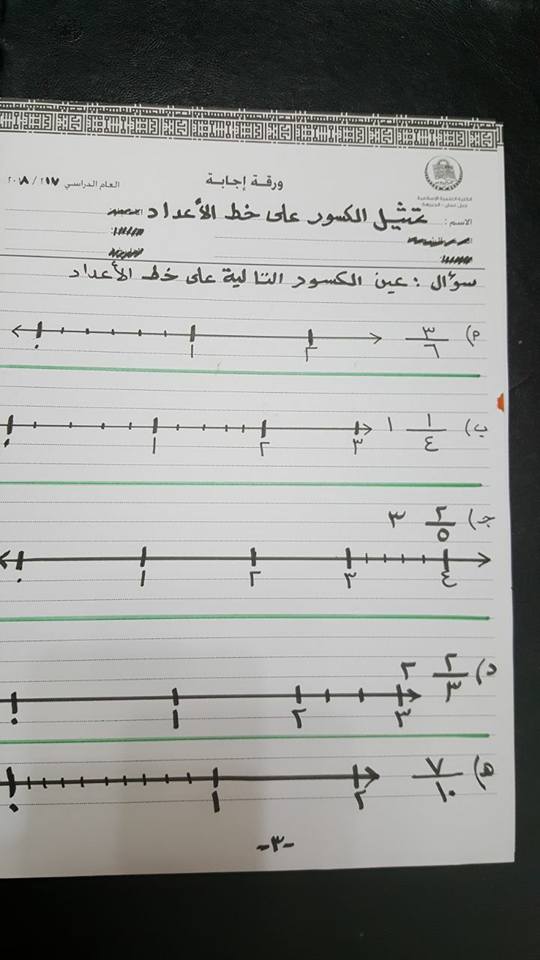 ورقة إجابة
العام الدراسي ٢٠١٧ / ٢٠١٨
الاسم : تمثيل الكسور على خط الأعداد
سؤال : عين الكسور التالية على خط الأعداد
٣/٦
٠ ١ ٢
ب) ١ ١/٤
٠ ١ ٢ ٣
جـ) ٣ ٢/٥
٠ ١ ٢ ٣ ٤
د) ٢ ٢/٣
٠ ١ ٢ ٣
هـ) ٧/١٠
٠ ١ ٢
-٣-